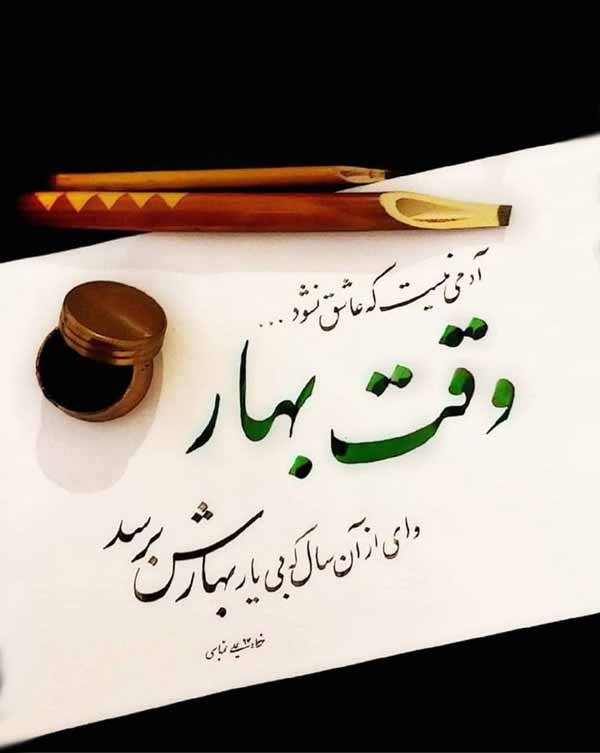 آدمی نیست که عاشق نشود ...
وقت بهار
وای از آن سال که بی یار بهارش برسد